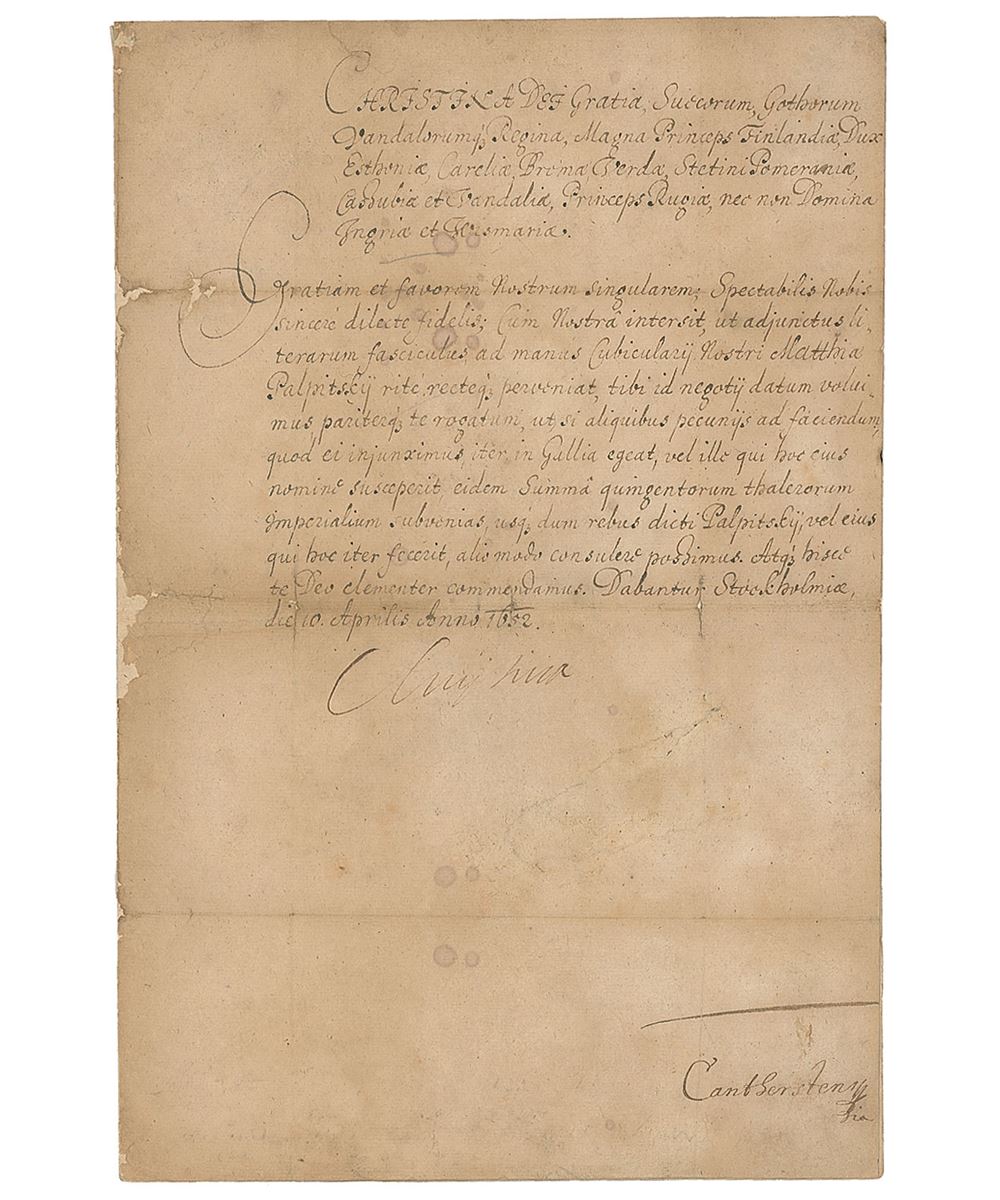 CHRISTINA DEI Gratia, Suecorum, Gothorum
Vandalorumq; Regina, Magna Princeps Finlandiæ, Dux
Esthoniæ, Careliæ, Bremæ Verdæ, Stetini Pomeraniæ,
Cassubiæ et Vandaliæ, Princeps Rugiæ, nec non Domina
Ingriæ et Wismariæ.
Gratiam et favorem Nostrum singularem; Spectabilis Nobis
sincerè dilecte fidelis; Cùm Nostrâ intersit, ut adjunctus li-
terarum fasciculus ad manus Cubicularij Nostri Matthiæ
Palpitskij ritè, recteq; perveniat, tibi id negotij datum volui-
mus, pariterq; te rogatum, ut si aliquibus pecunijs ad faciendum,
quod ei injunximus, iter in Gallia egeat, vel ille qui hoc eius
nomine susceperit, eidem Summâ quingentorum thalerorum
Imperialium subvenias, usq; dum rebus dicti Palpitskij, vel eius
qui hoc iter fecerit, alio modo consulere possimus. Atq; hisce
te Deo clementer commendamus. Dabantur Stockholmiæ,
die 10. Aprilis Anno 1652.
Cantherstenÿ